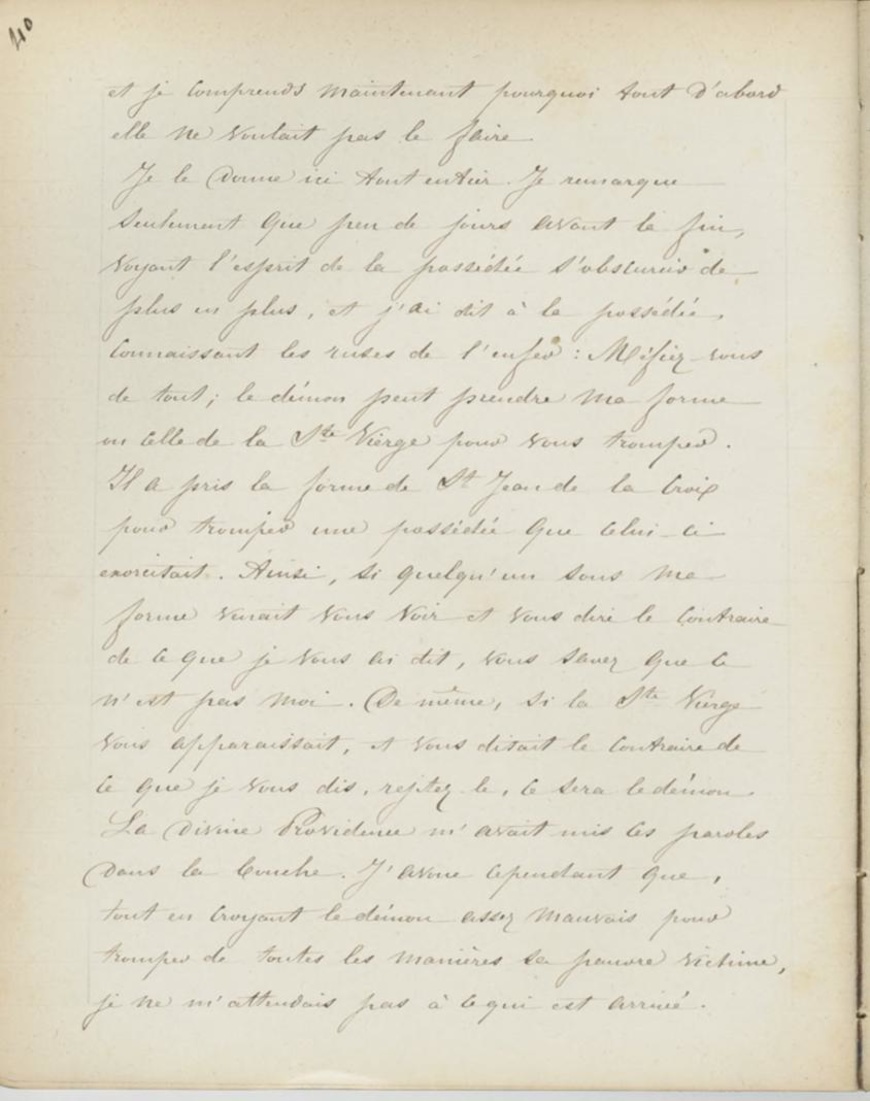 40
et je comprends maintenant pourquoi tout d'abord
elle ne voulait pas le faire
Je le donne ici tout entier. Je remarque
seulement que peu de jours avant la fin,
voyant l'esprit de la possédée s'obscurcir de
plus en plus, et j'ai dit à la possédée,
connaissant les ruses de l'enfer : Méfiez-vous
de tout ; le démon peut prendre ma forme
ou celle de la Ste Vierge pour vous tromper.
Il a pris la forme de St Jean de la Croix
pour tromper une possédée que celui-ci
exorcisait. Ainsi, si quelqu'un sous ma
forme venait vous voir et vous dire le contraire
de ce que je vous ai dit, vous savez que ce
n'est pas moi. De même, si la Ste Vierge
vous apparaissait, et vous disait le contraire de
ce que je vous dis, rejetez-le, ce sera le démon.
La Divine Providence m'avait mis ces paroles
dans la bouche. J'avoue cependant que,
tout en croyant le démon assez mauvais pour
tromper de toutes les manières sa pauvre victime,
je ne m'attendais pas à ce qui est arrivé.